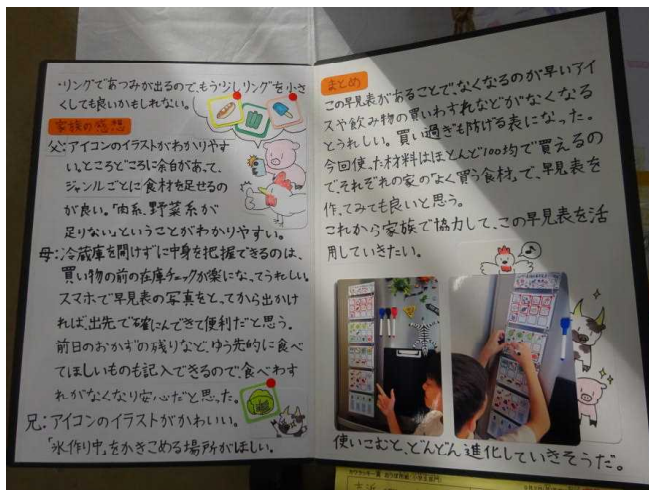 ・リングであつみが出るので、もう少しリングを小さ
くしても良いかもしれない。
家族の感想
父:アイコンのイラストがわかりやす
い。ところどころに余白があって、
ジャンルごとに食材を足せるの
が良い。「肉系、野菜系が
足りない」ということがわかりやすい。
母:冷蔵庫を開けずに中身を把握できるのは、
買い物の前の在庫チェックが楽になってうれしい。
スマホで早見表の写真をとってから出かけ
れば、出先で確にんできて便利だと思う。
前日のおかずの残りなど、ゆう先的に食べ
てほしいものも記入できるので、食べわす
れがなくなり安心だと思った。
兄:アイコンのイラストがかわいい。
「氷作り中」をかきこめる場所がほしい。
まとめ
この早見表があることで、なくなるのが早いアイ
スや飲み物の買いわすれなどがなくなる
とうれしい。買い過ぎも防げる表になった。
今回使った材料はほとんど100均で買えるの
でそれぞれの家の「よく買う食材」で、早見表を
作ってみても良いと思う。
これから家族で協力して、この早見表を活
用していきたい。
使いこむと、どんどん進化していきそうだ。